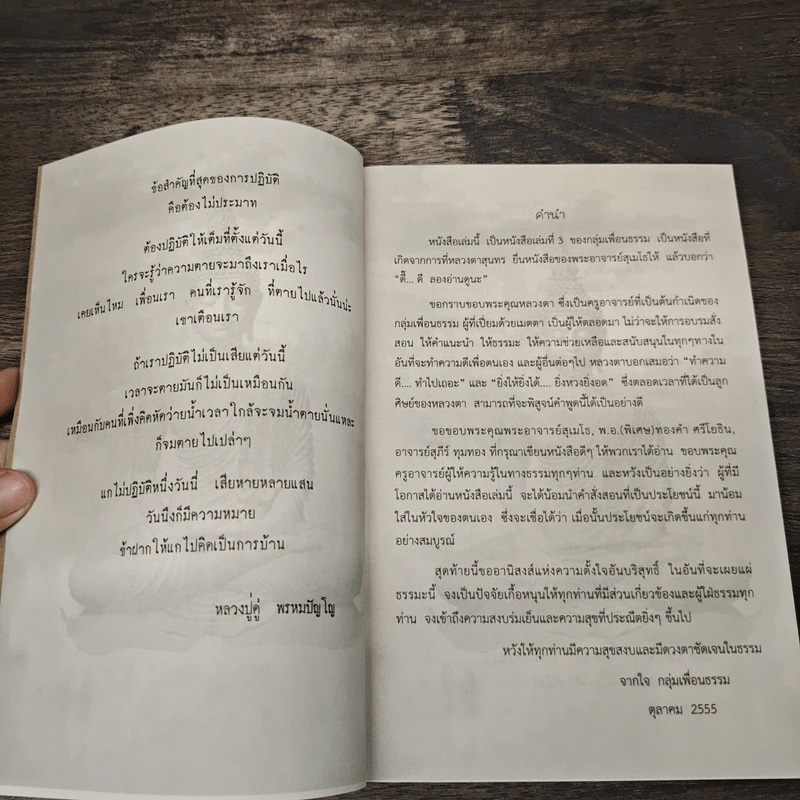 ข้อสำคัญที่สุดของการปฏิบัติ
คือต้องไม่ประมาท
ต้องปฏิบัติให้เต็มที่ตั้งแต่วันนี้
ใครจะรู้ว่าความตายจะมาถึงเราเมื่อไร
เคยเห็นไหม เพื่อนเรา คนที่เรารู้จัก ที่ตายไปแล้วนั่นน่ะ
เขาเตือนเรา
ถ้าเราปฏิบัติไม่เป็นเสียแต่วันนี้
เวลาจะตายมันก็ไม่เป็นเหมือนกัน
เหมือนกับคนที่เพิ่งคิดหัดว่ายน้ำเวลาใกล้จะจมน้ำตายนั่นแหละ
ก็จมตายไปเปล่าๆ
แกไม่ปฏิบัติหนึ่งวันนี่ เสียหายหลายแสน
วันนึงก็มีความหมาย
ข้าฝากให้แกไปคิดเป็นการบ้าน
หลวงปู่ดู่ พรหมปัญโญ
คำนำ
หนังสือเล่มนี้ เป็นหนังสือเล่มที่ 3 ของกลุ่มเพื่อนธรรม เป็นหนังสือที่
เกิดจากการที่หลวงตาสุนทร ยื่นหนังสือของพระอาจารย์สุเมโธให้ แล้วบอกว่า
“ดี๊... ดี ลองอ่านดูนะ”
ขอกราบขอบพระคุณหลวงตา ซึ่งเป็นครูอาจารย์ที่เป็นต้นกำเนิดของ
กลุ่มเพื่อนธรรม ผู้ที่เปี่ยมด้วยเมตตา เป็นผู้ให้ตลอดมา ไม่ว่าจะให้การอบรมสั่ง
สอน ให้คำแนะนำ ให้ธรรมะ ให้ความช่วยเหลือและสนับสนุนในทุกๆทางใน
อันที่จะทำความดีเพื่อตนเอง และผู้อื่นต่อๆไป หลวงตาบอกเสมอว่า “ทำความ
ดี.... ทำไปเถอะ” และ “ยิ่งให้ยิ่งได้.... ยิ่งหวงยิ่งอด” ซึ่งตลอดเวลาที่ได้เป็นลูก
ศิษย์ของหลวงตา สามารถที่จะพิสูจน์คำพูดนี้ได้เป็นอย่างดี
ขอขอบพระคุณพระอาจารย์สุเมโธ, พ.อ.(พิเศษ)ทองคำ ศรีโยธิน,
อาจารย์สุภีร์ ทุมทอง ที่กรุณาเขียนหนังสือดีๆ ให้พวกเราได้อ่าน ขอบพระคุณ
ครูอาจารย์ผู้ให้ความรู้ในทางธรรมทุกๆท่าน และหวังเป็นอย่างยิ่งว่า ผู้ที่มี
โอกาสได้อ่านหนังสือเล่มนี้ จะได้น้อมนำคำสั่งสอนที่เป็นประโยชน์นี้ มาน้อม
ใส่ในหัวใจของตนเอง ซึ่งจะเชื่อได้ว่า เมื่อนั้นประโยชน์จะเกิดขึ้นแก่ทุกท่าน
อย่างสมบูรณ์
สุดท้ายนี้ขออานิสงส์แห่งความตั้งใจอันบริสุทธิ์ ในอันที่จะเผยแผ่
ธรรมะนี้ จงเป็นปัจจัยเกื้อหนุนให้ทุกท่านที่มีส่วนเกี่ยวข้องและผู้ใฝ่ธรรมทุก
ท่าน จงเข้าถึงความสงบร่มเย็นและความสุขที่ประณีตยิ่งๆ ขึ้นไป
หวังให้ทุกท่านมีความสุขสงบและมีดวงตาชัดเจนในธรรม
จากใจ กลุ่มเพื่อนธรรม
ตุลาคม 2555